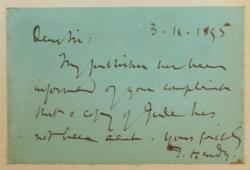 3. 11. 1895
Dear Sir:
My publisher has been
informed of your complaint
that a copy of Jude has
not been sent. Yours faithfully
T. Hardy.